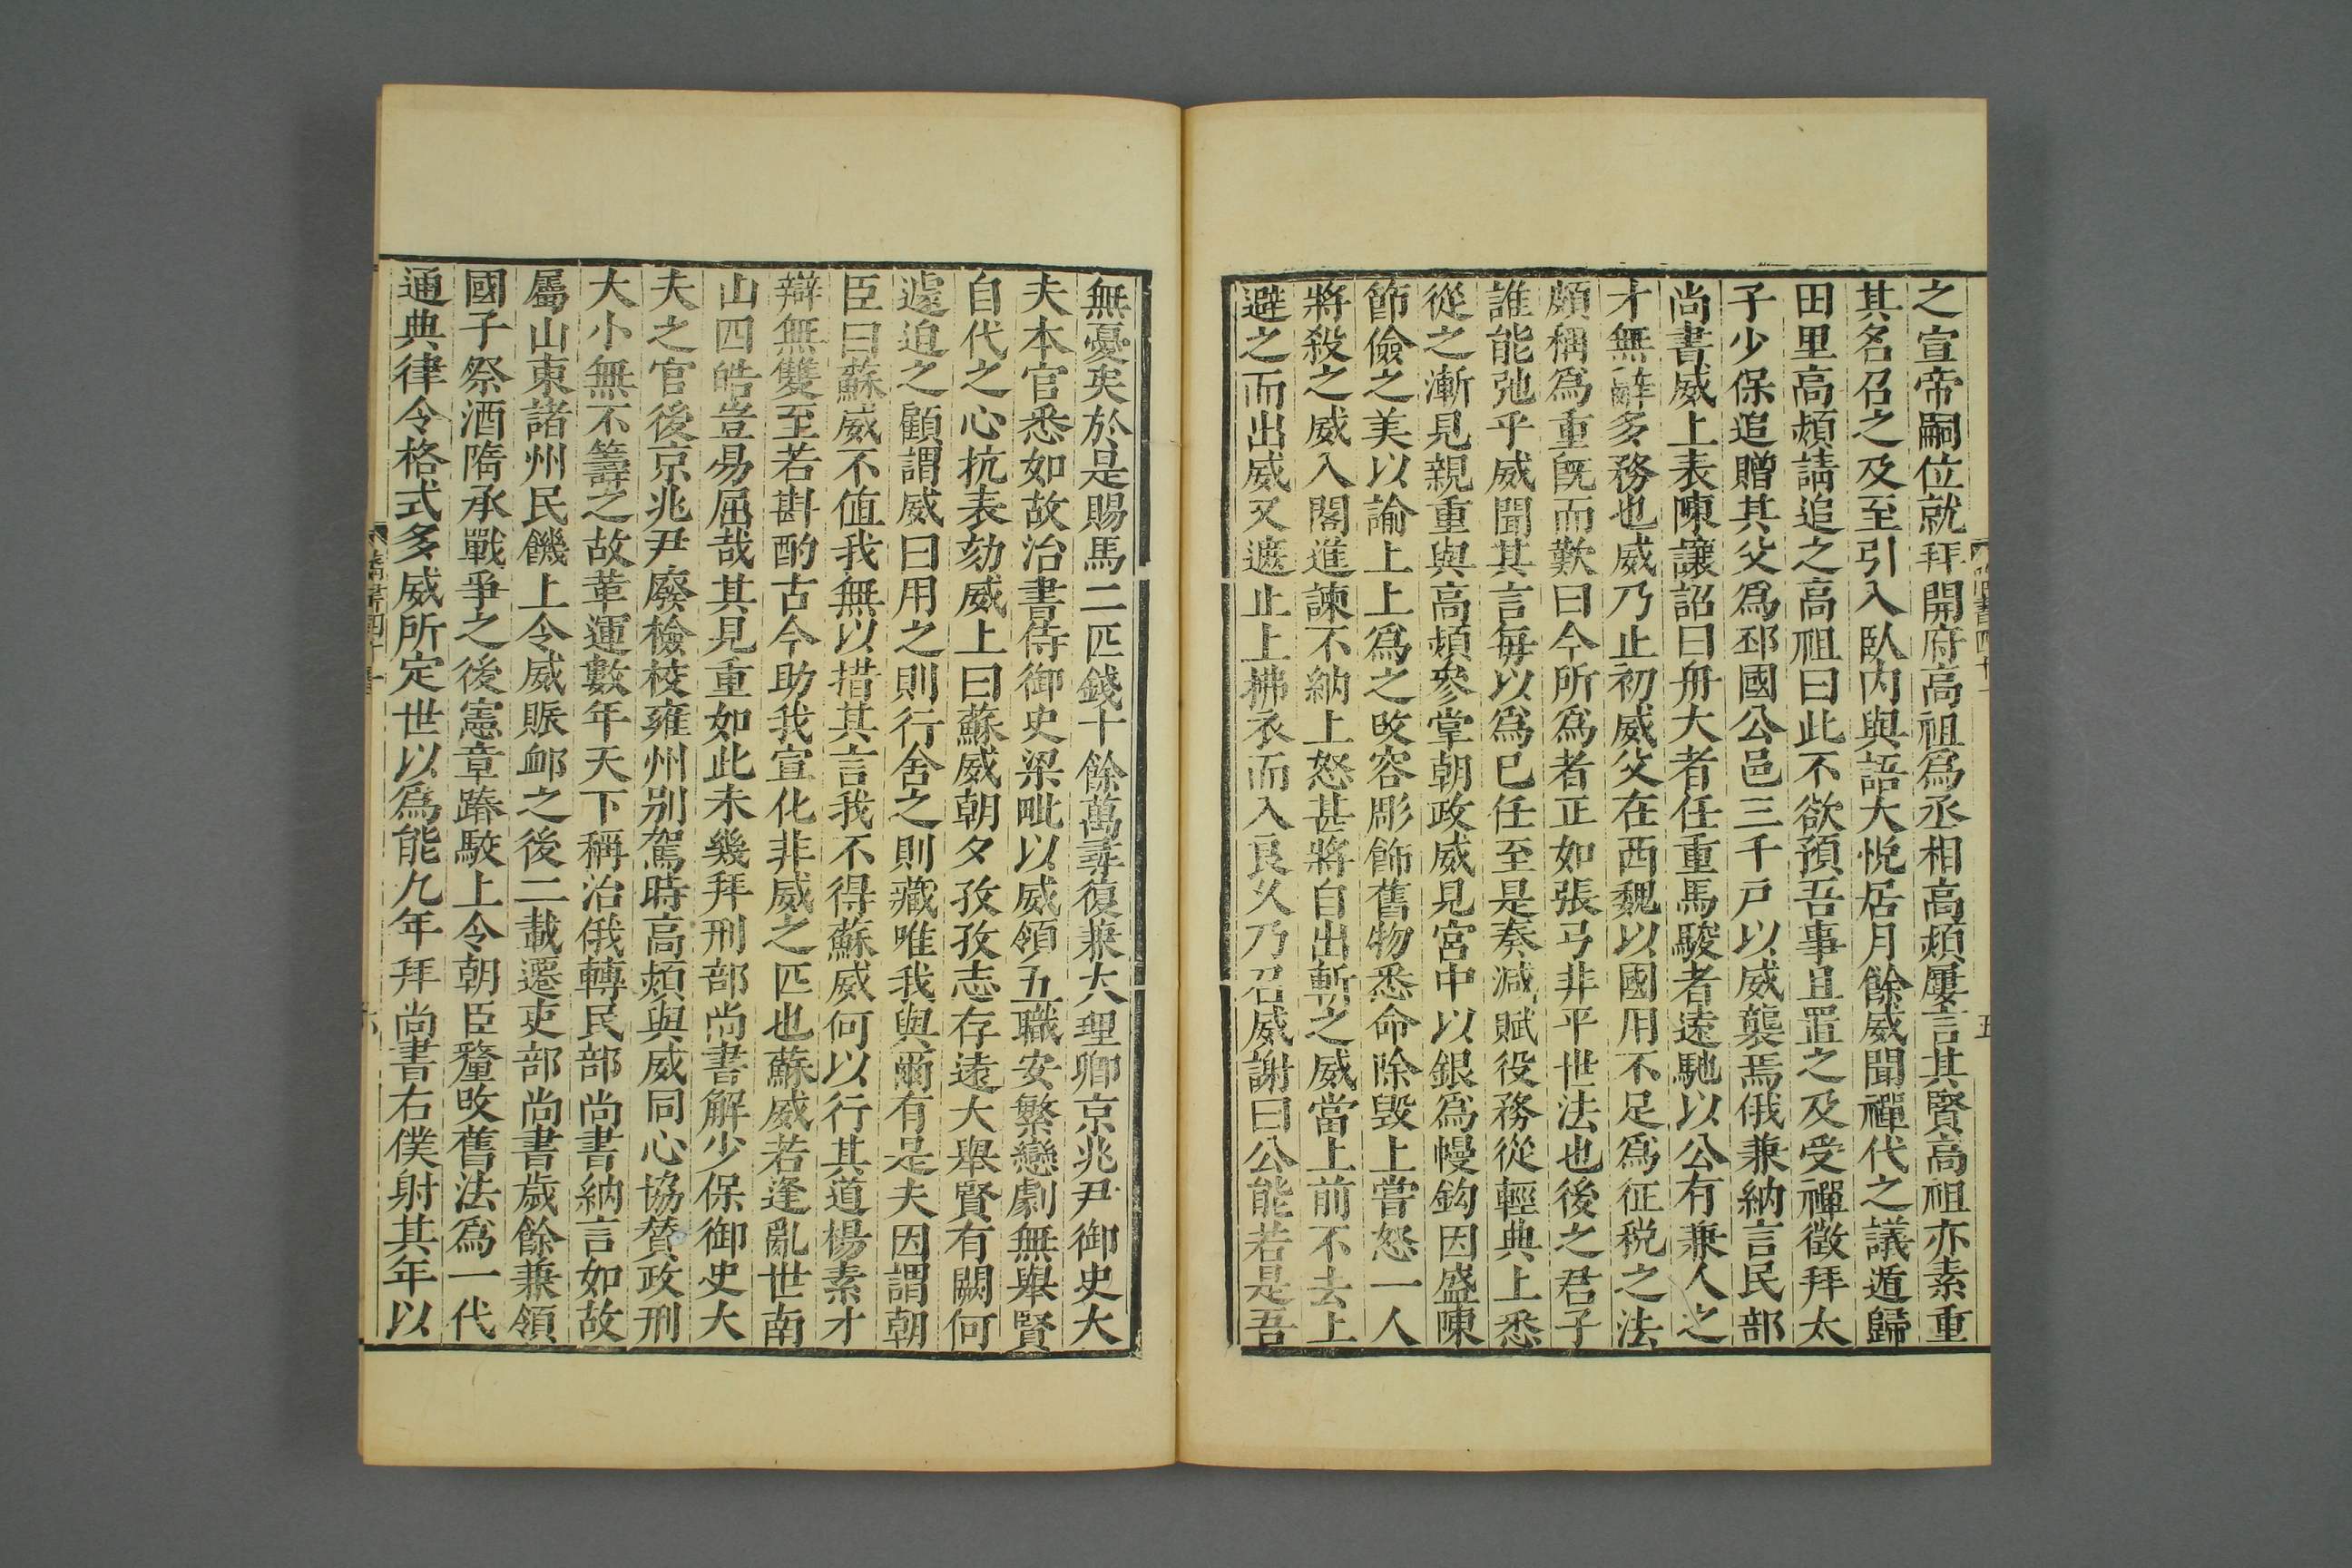 之宣帝嗣位就拜開府高祖爲丞相高熲屢言其賢高祖亦素重
其名召之及至引入臥内與語大悅居月餘威聞禪代之議遁歸
田里高熲請追之高祖曰此不欲預吾事且置之及受禪徵拜太
子少保追贈其父爲邳國公邑三千戸以威襲焉俄兼納言民部
尚書威上表陳讓詔曰舟大者任重馬駿者遠馳以公有兼人之
才無辭多務也威乃止初威父在西魏以國用不足爲征税之法
頗稱爲重旣而歎曰今所爲者正如張弓非平世法也後之君子
誰能弛乎威聞其言毎以爲己任至是奏減賦役務從輕典上悉
從之漸見親重與高熲參掌朝政威見宮中以銀爲幔鈎因盛陳
節儉之美以諭上上爲之改容彫飾舊物悉命除毀上嘗怒一人
將殺之威入閤進諫不納上怒甚將自出斬之威當上前不去上
避之而出威又遮止上拂衣而入良久乃召威謝曰公能若是吾
無憂矣於是賜馬二匹錢十餘萬尋復兼大理卿京兆尹御史大
夫本官悉如故治書侍御史梁毗以威領五職安繁戀劇無舉賢
自代之心抗表劾威上曰蘇威朝夕孜孜志存遠大舉賢有闕何
遽迫之顧謂威曰用之則行舍之則藏唯我與爾有是夫因謂朝
臣曰蘇威不值我無以措其言我不得蘇威何以行其道楊素才
辯無雙至若斟酌古今助我宣化非威之匹也蘇威若逢亂世南
山四皓豈易屈哉其見重如此未幾拜刑部尚書解少保御史大
夫之官後京兆尹廢檢校雍州别駕時高熲與威同心協贊政刑
大小無不籌之故革運數年天下稱治俄轉民部尚書納言如故
屬山東諸州民饑上令威賑卹之後二載遷吏部尚書歲餘兼領
國子祭酒隋承戰爭之後憲章踳駮上令朝臣釐改舊法爲一代
通典律令格式多威所定世以爲能九年拜尚書右僕射其年以